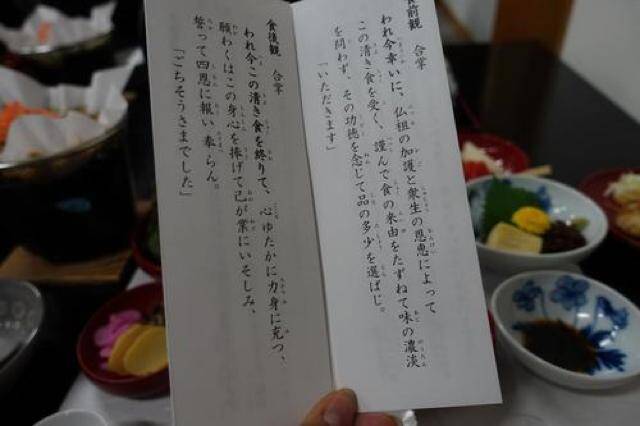 食前観　合掌
われ今幸いに、仏祖の加護と衆生の恩恵によって
この清き食を受く、謹んで食の来由をたずねて味の濃淡
を問わず、その功徳を念じて品の多少を選ばじ。
「いただきます」
食後観　合掌
われ今この清き食を終りて、心ゆたかに力身に充つ、
願わくはこの身心を捧げて己が業にいそしみ、
誓って四恩に報い奉らん。
「ごちそうさまでした」